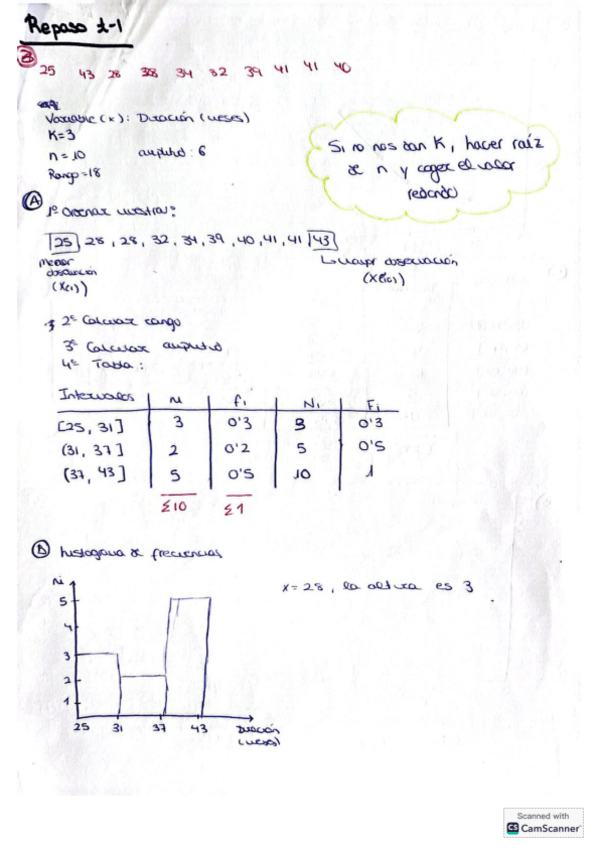 Repaso t-1
25 43 28 28 34 32 39 41 41 40
Variable (x): Duración (meses)
K=3
n = 10 amplitud: 6
Rango = 18
Si no nos dan K, hacer raíz
de n y coger el valor
redondo
A 1º Ordenar muestra:
25, 28, 28, 32, 34, 39, 40, 41, 41, 43
menor
observación
(x(1))
↳ mayor observación
2º Calcular rango
3º Calcular amplitud
4º Tabla:
Intervalos ni fi Ni Fi
[25, 31] 3 0'3 3 0'3
(31, 37] 2 0'2 5 0'5
(37, 43] 5 0'5 10 1
Σ10 Σ1
histograma de frecuencias
x = 28, la altura es 3
Ni
5
4
3
2
1
25 31 37 43
Duración
(meses)
Scanned with
CS CamScanner